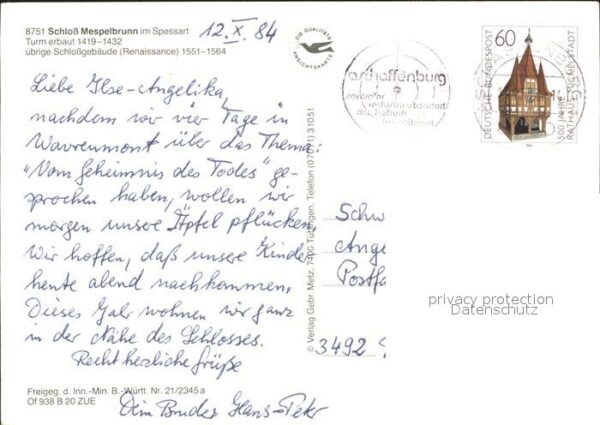 8751 Schloß Mespelbrunn im Spessart
Turm erbaut 1419–1432
übrige Schloßgebäude (Renaissance) 1551–1564
12. X. 84
Liebe Ilse-Angelika,
nachdem wir vier Tage in
Wavreumont über das Thema:
"Vom Geheimnis des Todes" ge-
sprochen haben, wollen wir
morgen unsere Äpfel pflücken.
Wir hoffen, daß unsere Kinder
heute abend nachkommen.
Dieses Jahr wohnen wir ganz
in der Nähe des Schlosses.
Recht herzliche Grüße
Dein Bruder Hans-Peter
Freigeg. d. Inn.-Min. B.-Württ. Nr. 21/2345 a
Of 938 B 20 ZUE
© Verlag Gebr. Metz, 7400 Tübingen, Telefon (07071) 31051
DIE QUALITÄTS
ANSICHTSKARTE
aschaffenburg
zentraler
industriestandort
mit hohem
freizeitwert
60
DEUTSCHE BUNDESPOST
500 JAHRE
RATHAUS MICHELSTADT
Schw
Ange
Postfa
3492
privacy protection
Datenschutz